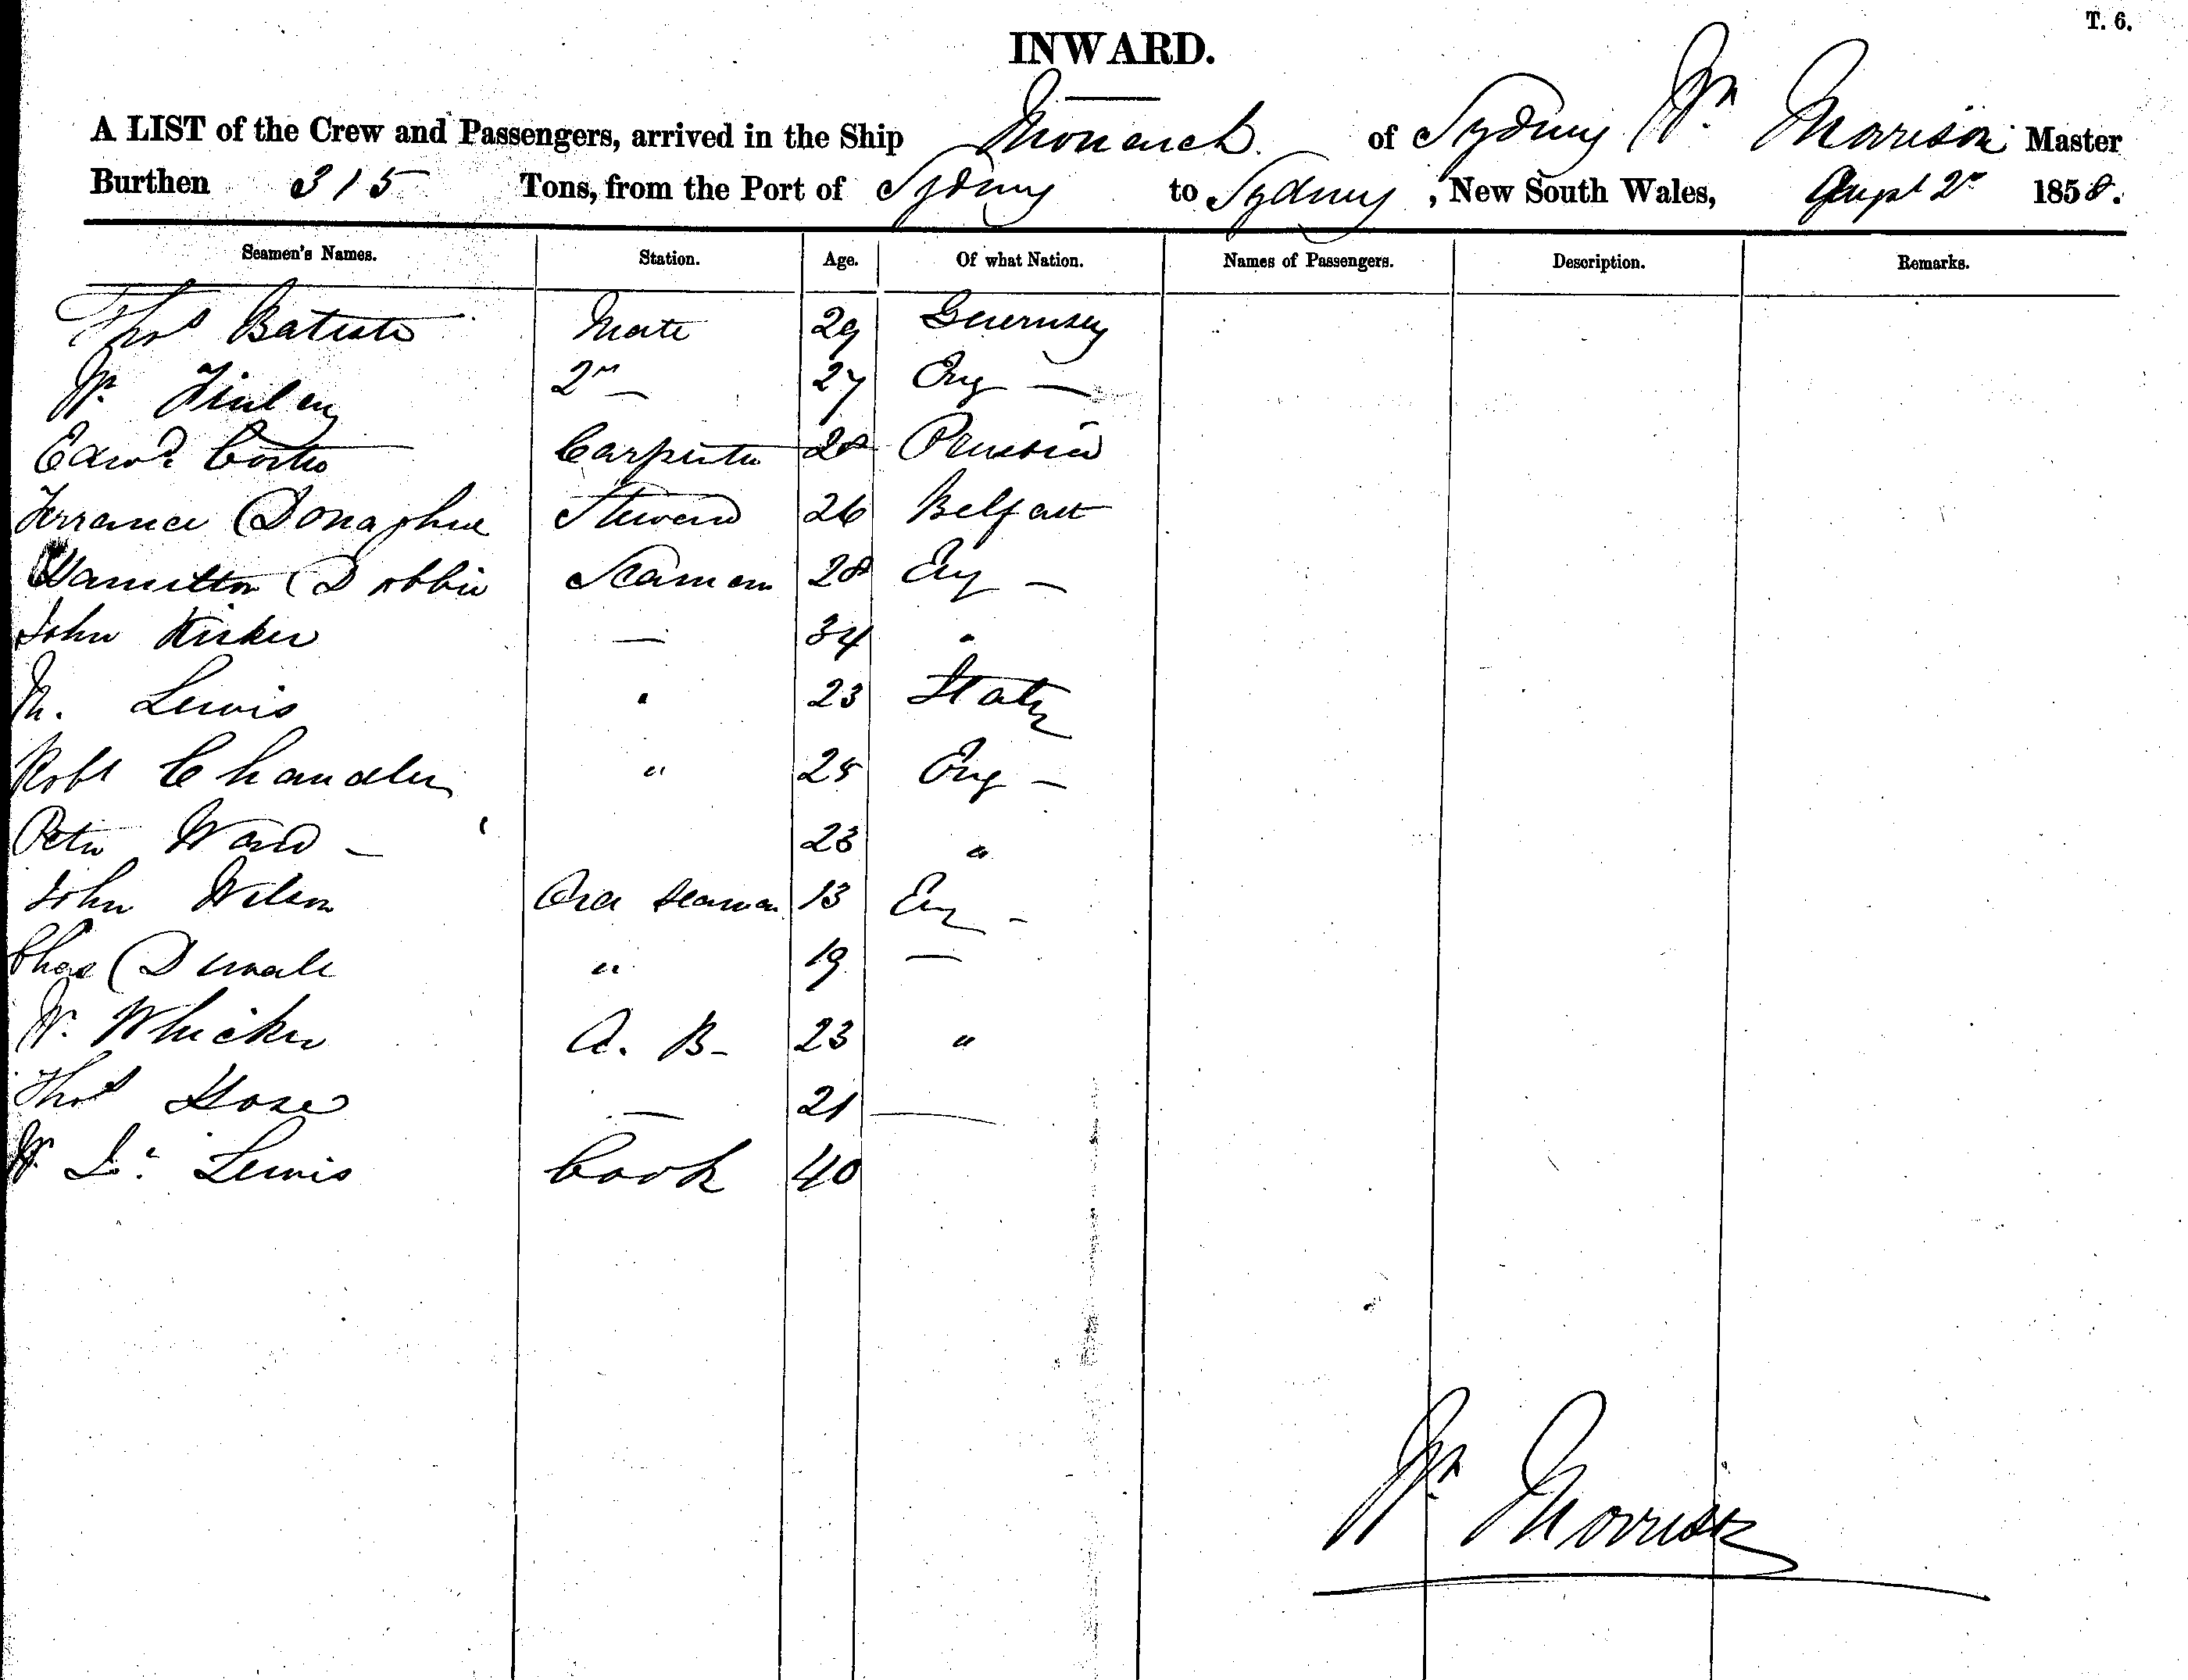 T. 6.
INWARD.
A LIST of the Crew and Passengers, arrived in the Ship Monarch of Sydney Wm Morrison Master
Burthen 315 Tons, from the Port of Sydney to Sydney, New South Wales, Augst 2nd 1858.
Seamen's Names. Station. Age. Of what Nation. Names of Passengers. Description. Remarks.
Thos Batiste Mate 29 Guernsey
W. Finley 2nd — 27 Eng —
Edwd Carpenter 28 Prussia
Terrance Donaghue Steward 26 Belfast
Hamilton Dobbie Seaman 28 Eng —
John Kirker — 34 "
M. Lewis " 23 States
Robt Chandler " 25 Eng —
Peter Ward — 23 "
John Wilson Ord Seaman 13 Eng -
Chas " 19 —
W. Whicker A. B - 23 "
Thos Hose — 21 —
W. Lewis Cook 40
Wm Morrison